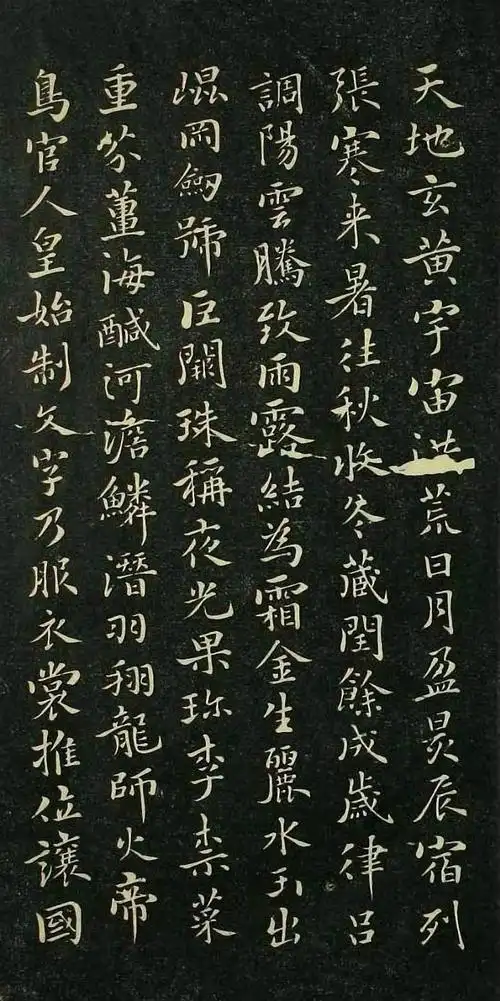 天地玄黃宇宙洪荒日月盈昃辰宿列
張寒来暑往秋收冬藏閏餘成歲律吕
調陽雲騰致雨露結為霜金生麗水玉出
崐罡劒號巨闕珠稱夜光果珎李柰菜
重芥薑海醎河淡鱗潛羽翔龍師火帝
鳥官人皇始制文字乃服衣裳推位讓國